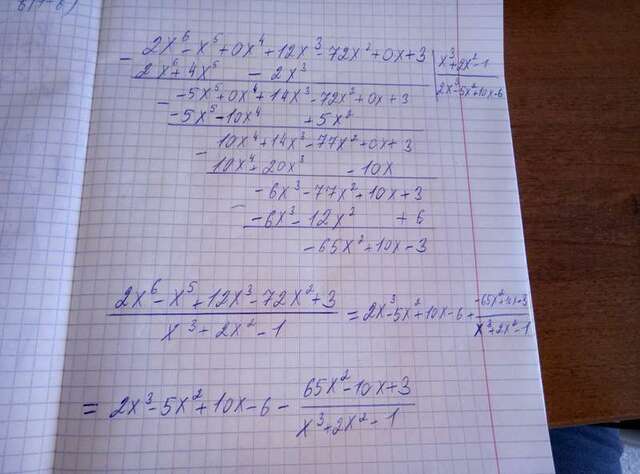 2x⁶ - x⁵ + 0x⁴ + 12x³ - 72x² + 0x + 3 | x³ + 2x² - 1
- 2x⁶ + 4x⁵ - 2x³ | 2x³ - 5x² + 10x - 6
-5x⁵ + 0x⁴ + 14x³ - 72x² + 0x + 3
- -5x⁵ - 10x⁴ + 5x²
10x⁴ + 14x³ - 77x² + 0x + 3
- 10x⁴ + 20x³ - 10x
-6x³ - 77x² + 10x + 3
- -6x³ - 12x² + 6
-65x² + 10x - 3
(2x⁶ - x⁵ + 12x³ - 72x² + 3)/(x³ + 2x² - 1) = 2x³ - 5x² + 10x - 6 + (-65x² + 10x - 3)/(x³ + 2x² - 1)
= 2x³ - 5x² + 10x - 6 - (65x² - 10x + 3)/(x³ + 2x² - 1)